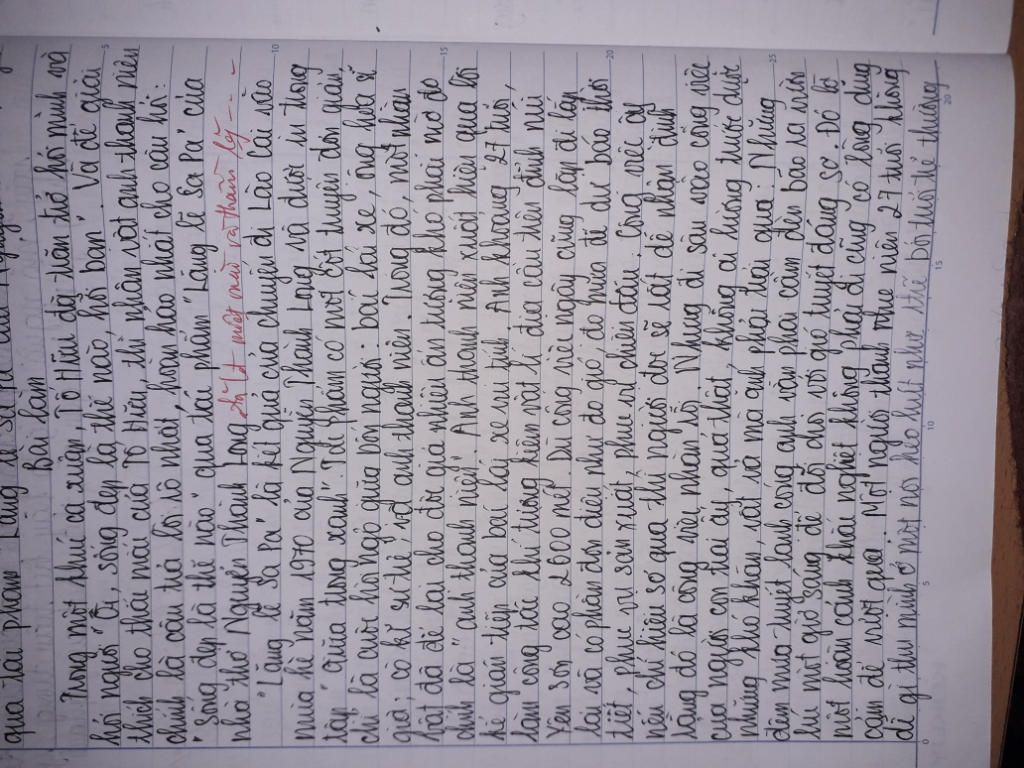 qua tác phẩm "Lặng lẽ Sa Pa" của
Bài làm
Trong một khúc ca xuân, Tố Hữu đã trăn trở hỏi mình và
hỏi người "Ôi, sống đẹp là thế nào, hỡi bạn". Và để giải
thích cho thắc mắc của Tố Hữu, thì nhân vật anh thanh niên
chính là câu trả lời rõ nhất, hoàn hảo nhất cho câu hỏi:
"Sống đẹp là thế nào" qua tác phẩm "Lặng lẽ Sa Pa" của
nhà thơ Nguyễn Thành Long
"Lặng lẽ Sa Pa" là kết quả của chuyến đi Lào Cai vào
mùa hè năm 1970 của Nguyễn Thành Long và được in trong
tập "Giữa trong xanh". Tác phẩm có một cốt truyện đơn giản,
chỉ là cuộc hội ngộ giữa bốn người: bác lái xe, ông họa sĩ
già, cô kĩ sư trẻ, và anh thanh niên. Trong đó, một nhân
vật đã để lại cho độc giả nhiều ấn tượng khó phai mờ đó
chính là "anh thanh niên". Anh thanh niên xuất hiện qua lời
kể gián tiếp của bác lái xe vui tính. Anh khoảng 27 tuổi,
làm công tác khí tượng kiêm vật lí địa cầu trên đỉnh núi
Yên Sơn cao 2600 mét. Dù công việc ngày cũng lặp đi lặp
lại và có phần đơn điệu như đo gió, đo mưa để dự báo thời
tiết, phục vụ sản xuất, phục vụ chiến đấu. Công việc ấy
nếu chỉ hiểu sơ qua thì người đọc sẽ rất dễ nhận định
rằng đó là công việc nhàn rỗi. Nhưng đi sâu vào công việc
của người con trai ấy, quả thật, không ai lường trước được
những khó khăn, vất vả mà anh phải trải qua. Những
đêm mưa tuyết lạnh cóng anh vẫn phải cầm đèn bão ra vườn
lúc một giờ sáng để đối chọi với gió tuyết đáng sợ. Đó là
một hoàn cảnh khắc nghiệt không phải ai cũng có lòng dũng
cảm để vượt qua. Một người thanh niên 27 tuổi không
dễ gì thu mình ở một nơi hẻo hút như thế bởi tuổi trẻ thường